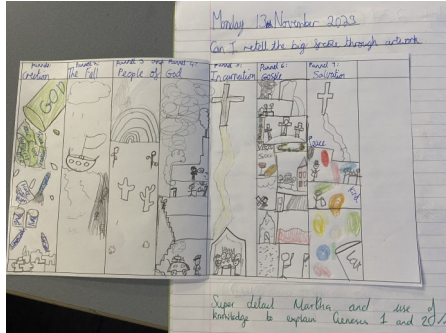 Monday 13th November 2023
Can I retell the big frieze through artwork
Pannel 1:
Creation
Pannel 2:
The Fall
Pannel 3 and
People of
Pannel 4:
God
Pannel 5:
Incarnation
Pannel 6:
Gospel
Pannel 7:
Salvation
GOD
Peace
Super detail Martha and use of
knowledge to explain Genesis 1 and 2